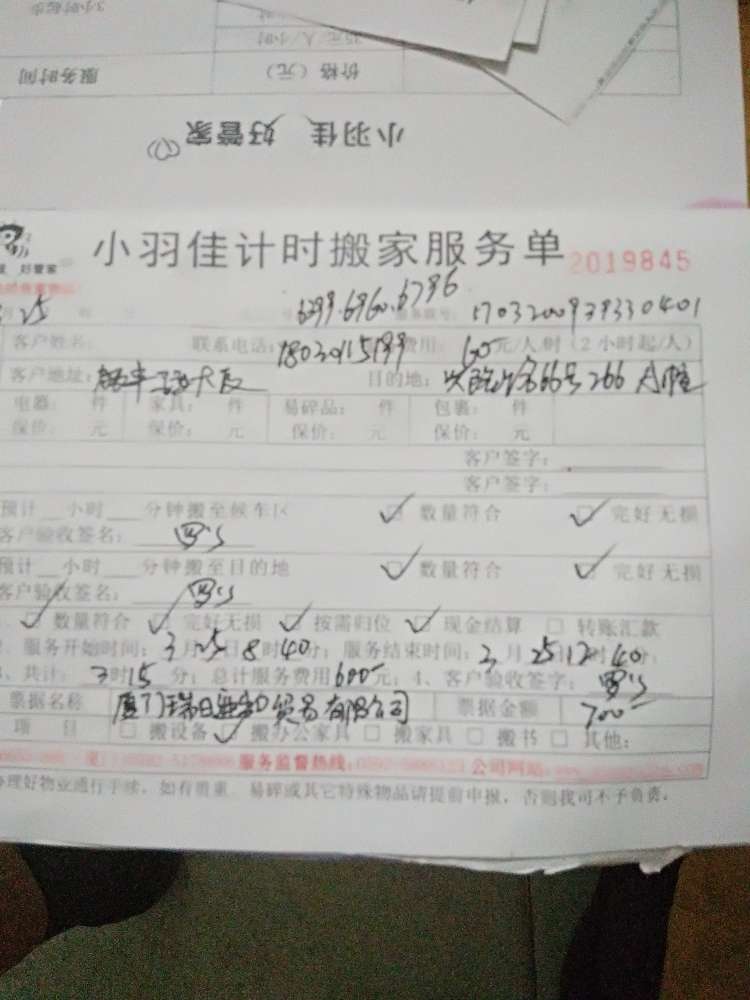 3小时起步
35元/人/小时
服务时间 价格（元）
小羽佳 好管家
好管家 小羽佳计时搬家服务单 2019845
25 6299.6960.6796 170320093933040​1
客户姓名: 联系电话: 费用: 60 元/人/时（2小时起/人）
客户地址: 目的地: 66号266
电器: 件 家具: 件 易碎品: 件 包裹: 件
保价: 元 保价: 元 保价: 元 保价: 元
客户签字:
客户签字:
预计 小时 分钟搬至候车区 数量符合 完好无损
客户验收签名:
预计 小时 分钟搬至目的地 数量符合 完好无损
客户验收签名:
数量符合 完好无损 按需归位 现金结算 转账汇款
服务开始时间: 3月25日8时40分; 服务结束时间: 3月25日12时40分;
共计: 3时15分; 总计服务费用600元; 4、客户验收签字:
票据名称 厦门瑞日 贸易有限公司 票据金额 700
项目 搬设备 搬办公家具 搬家具 搬书 其他:
服务监督热线: 公司网站:
办理好物业通行手续, 如有贵重、易碎或其它特殊物品请提前申报, 否则我司不予负责.